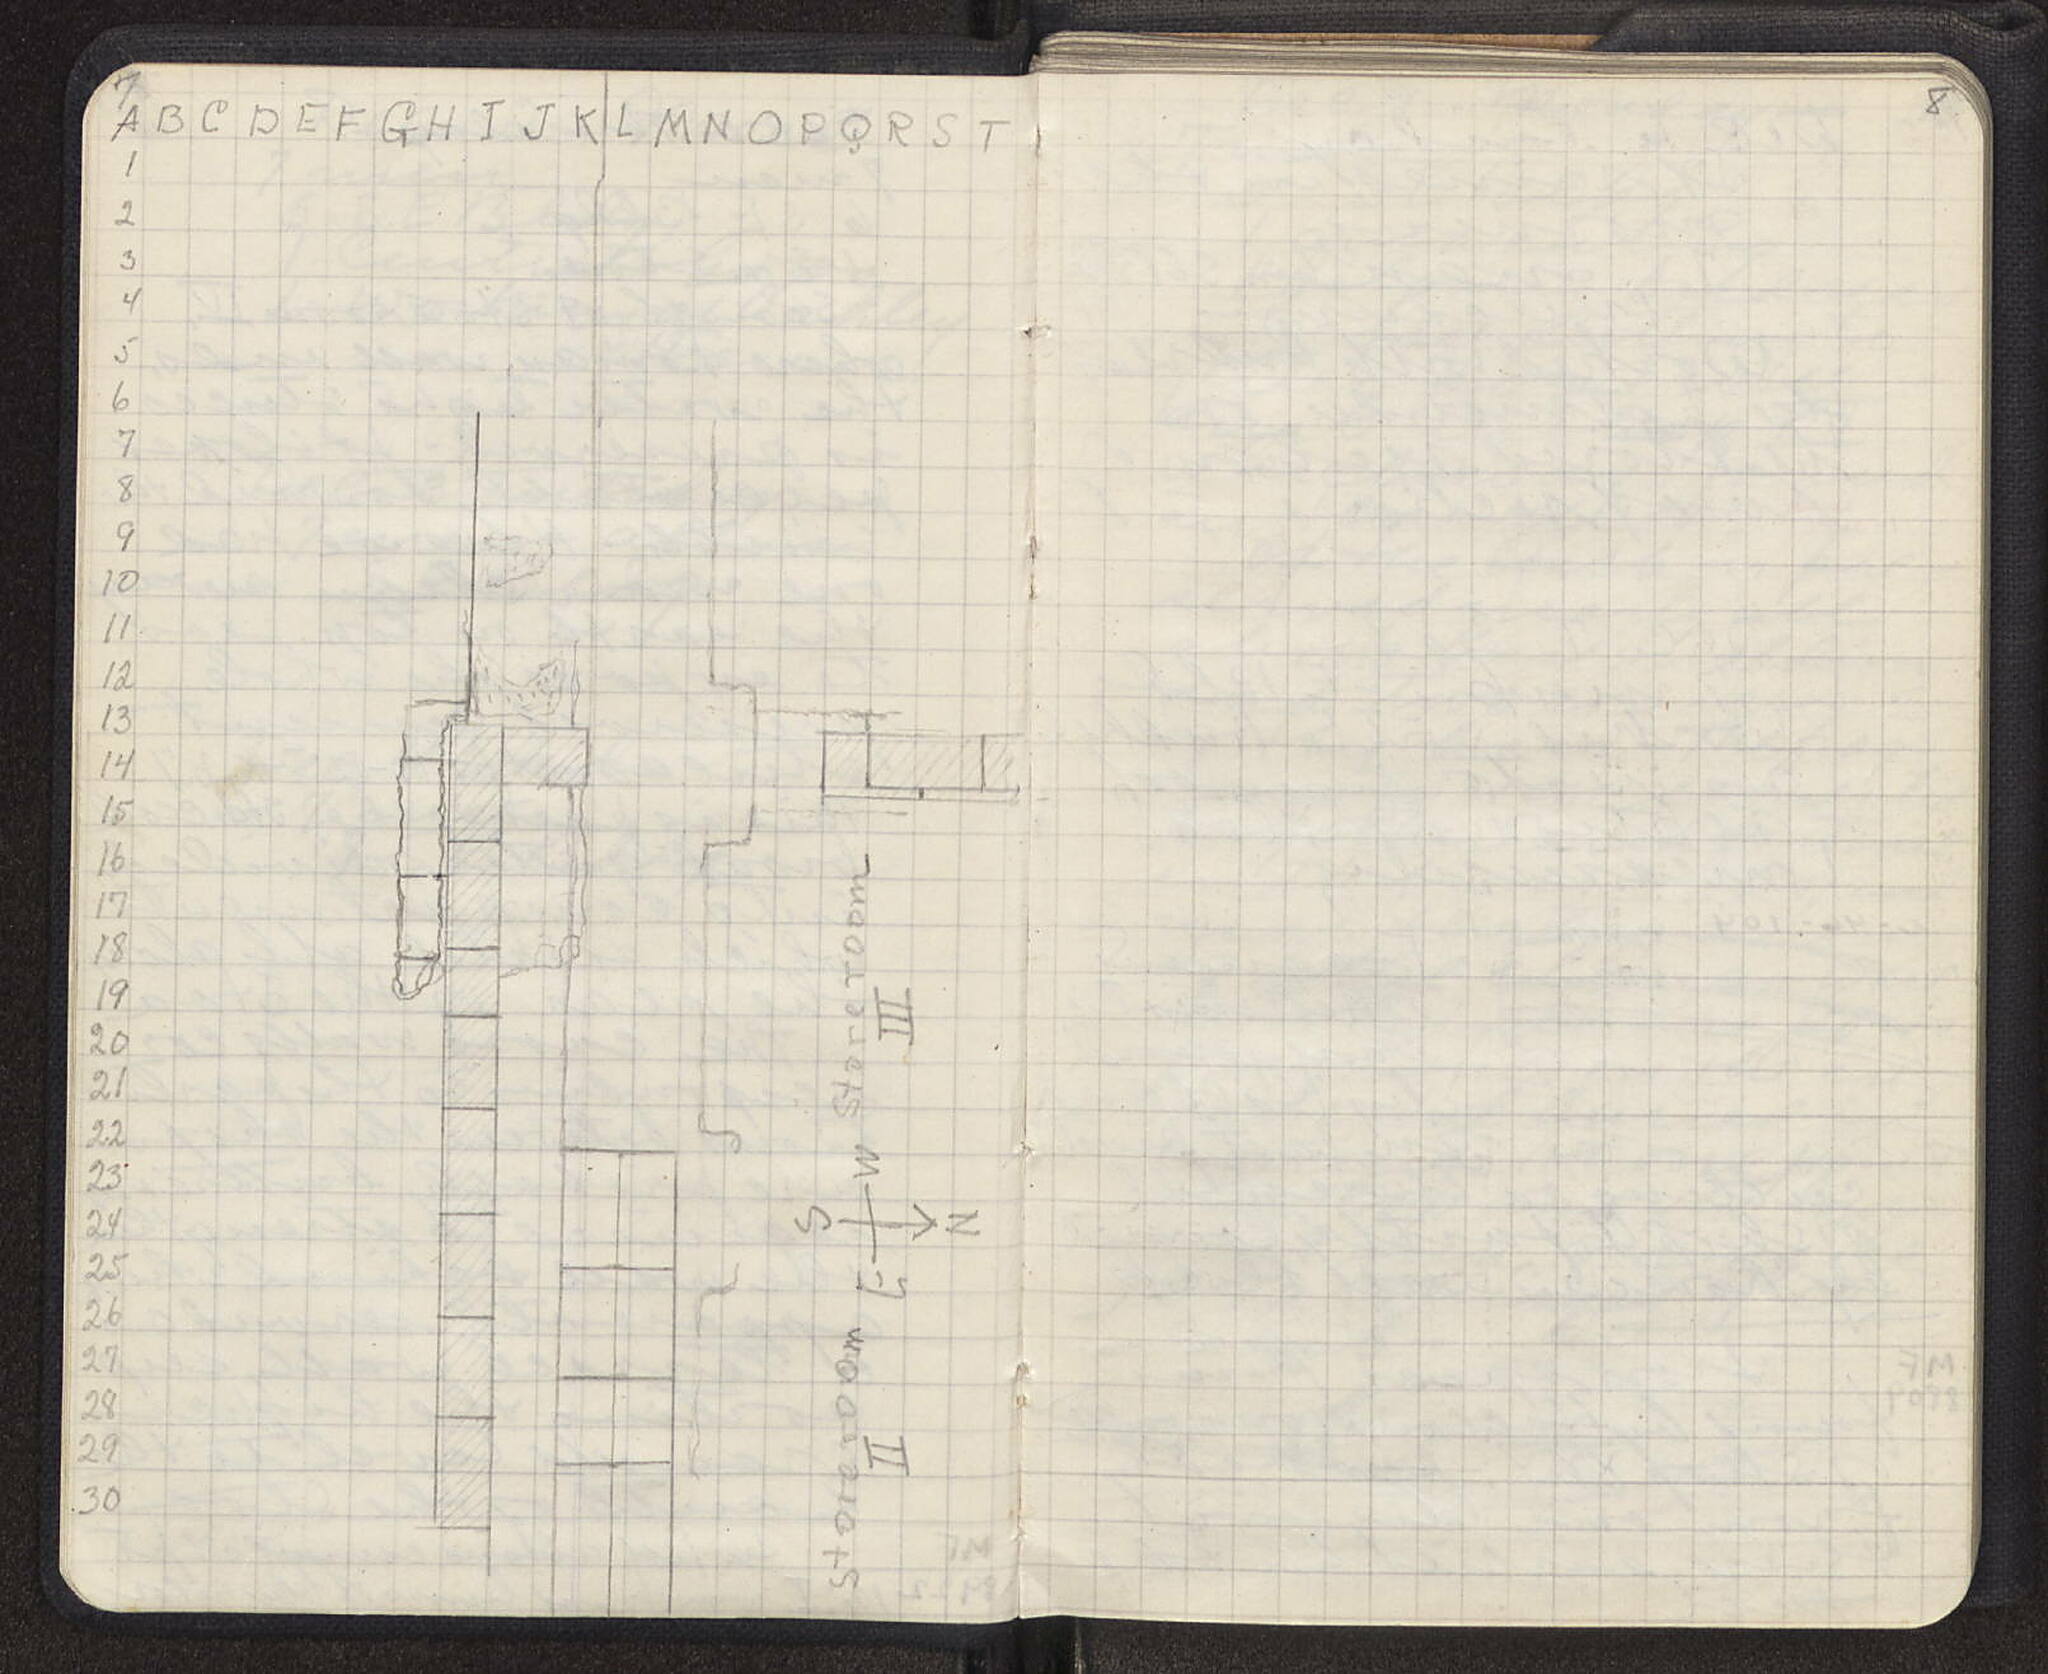 7
A B C D E F G H I J K L M N O P Q R S T
1
2
3
4
5
6
7
8
9
10
11
12
13
14
15
16
17
18
19
20
21
22
23
24
25
26
27
28
29
30
Storeroom
III
W
S
N
E
Storeroom
II
8